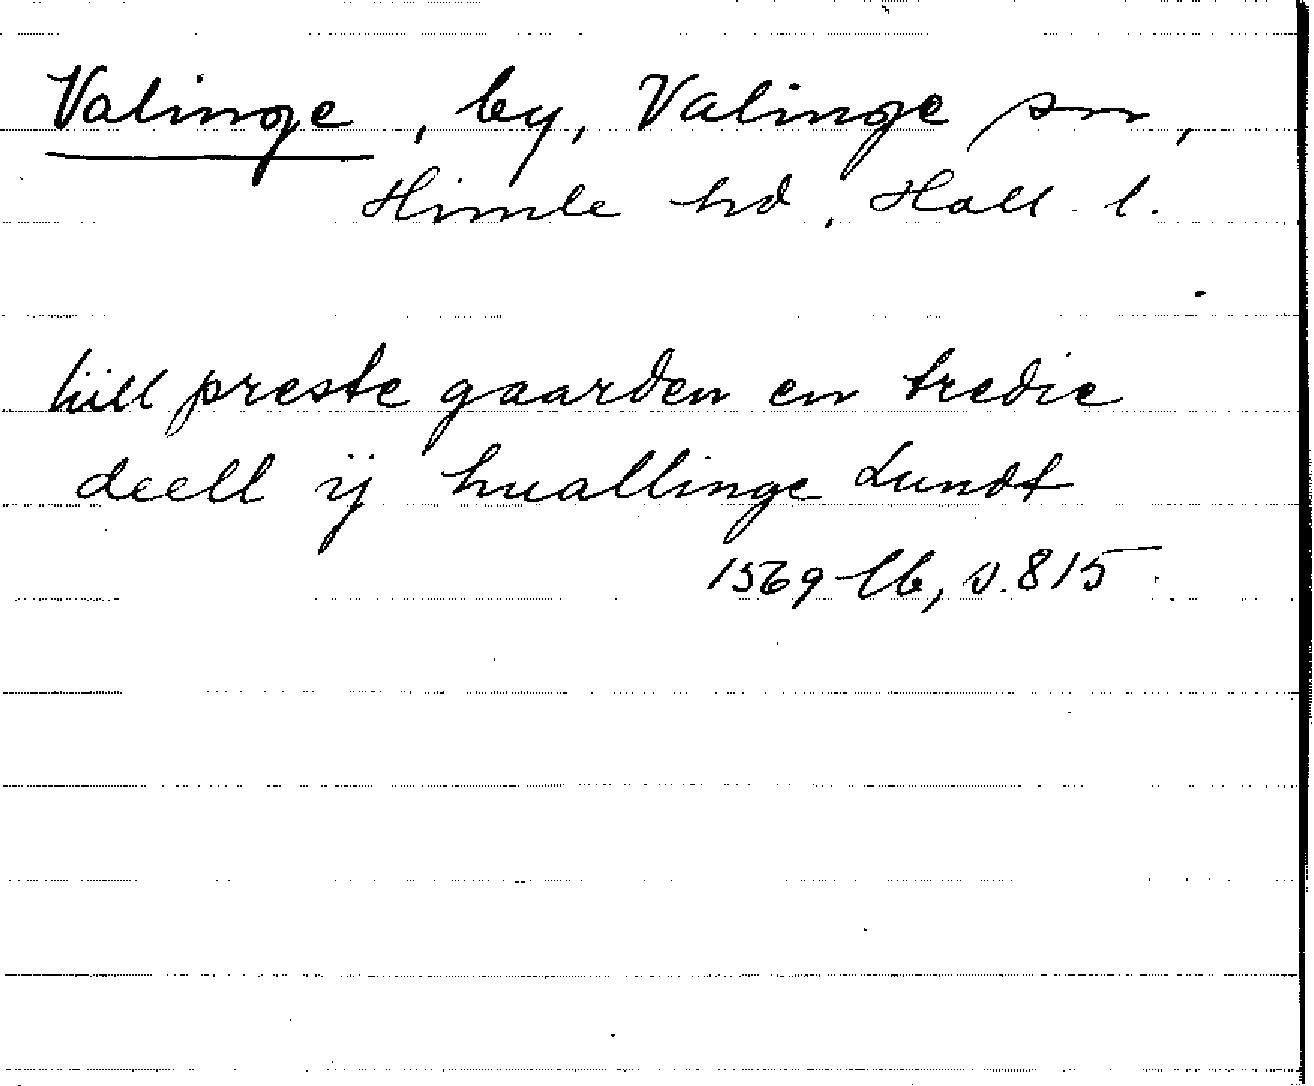 Valinge, by, Valinge sn,
Himle hd, Hall. l.
tiill preste gaarden en tredie
deell ij huallinge Lundt
1569 lb, s. 815